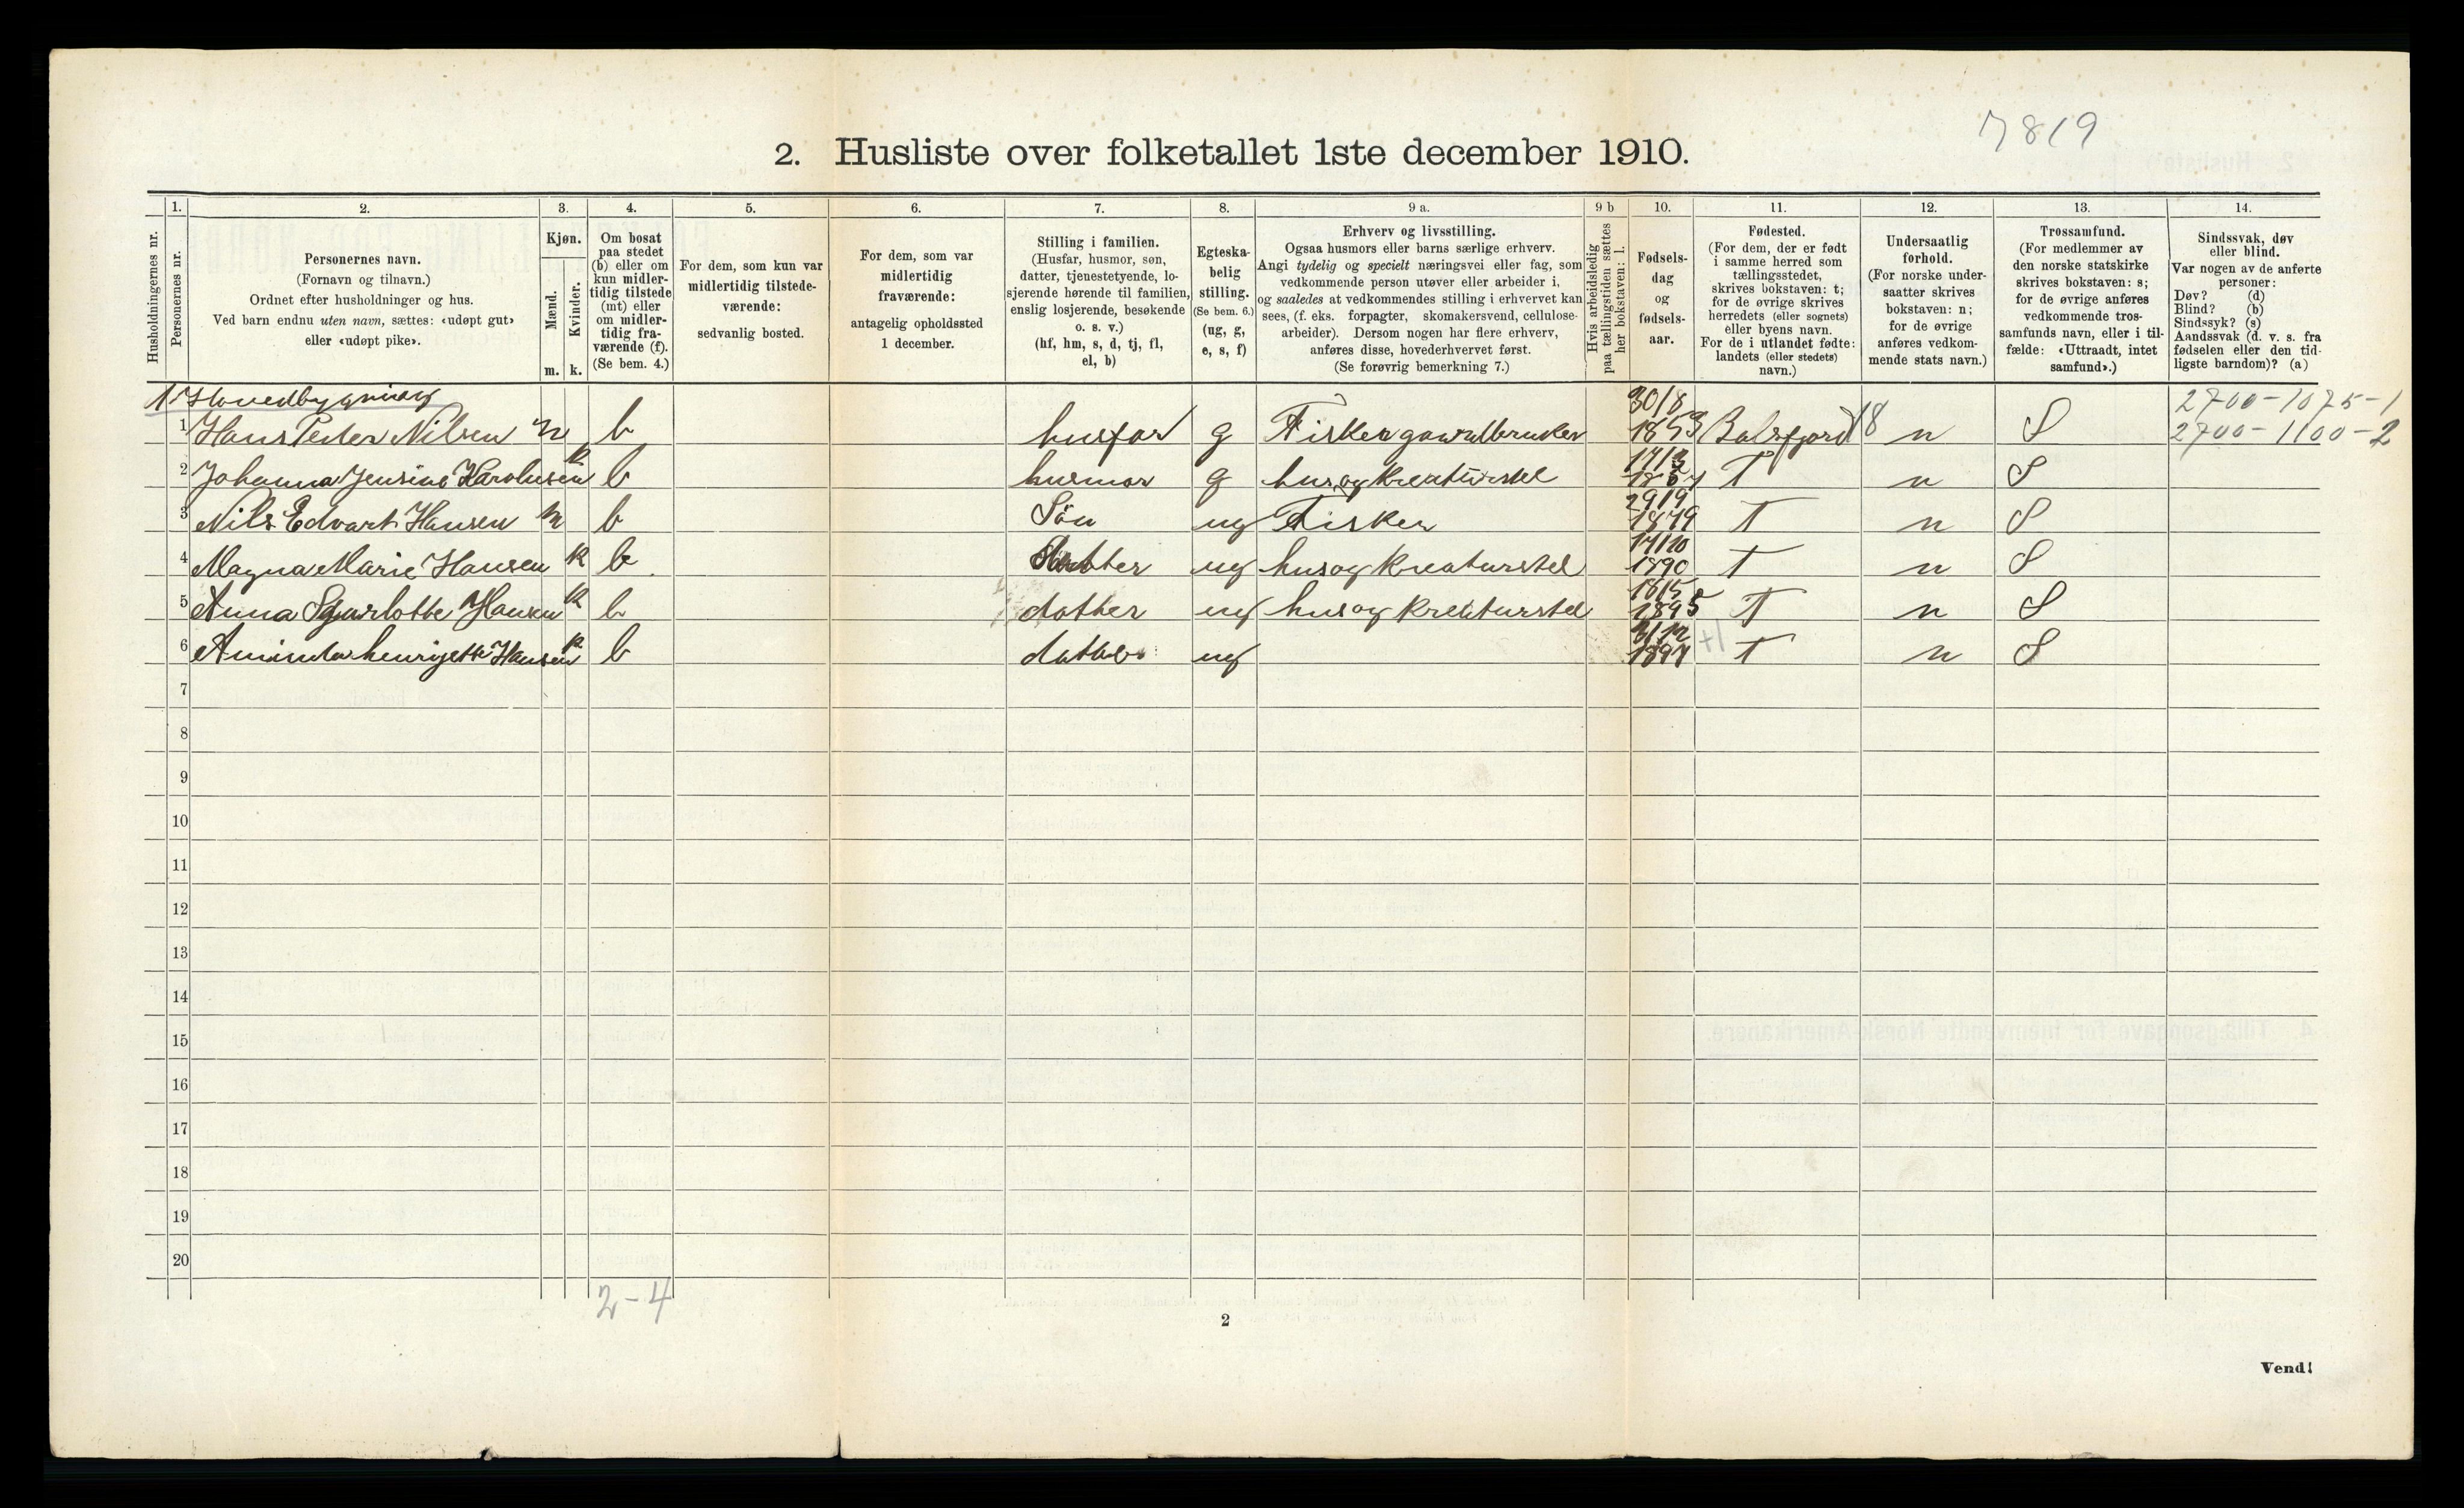 7819
2. Husliste over folketallet 1ste december 1910.
Husholdningernes nr.
1. Personernes nr.
2. Personernes navn. (Fornavn og tilnavn.) Ordnet efter husholdninger og hus. Ved barn endnu uten navn, sættes: «udøpt gut» eller «udøpt pike».
3. Kjøn. Mænd. m. Kvinder. k.
4. Om bosat paa stedet (b) eller om kun midlertidig tilstede (mt) eller om midlertidig fraværende (f). (Se bem. 4.)
5. For dem, som kun var midlertidig tilstedeværende: sedvanlig bosted.
6. For dem, som var midlertidig fraværende: antagelig opholdssted 1 december.
7. Stilling i familien. (Husfar, husmor, søn, datter, tjenestetyende, losjerende hørende til familien, enslig losjerende, besøkende o. s. v.) (hf, hm, s, d, tj, fl, el, b)
8. Egteskabelig stilling. (Se bem. 6.) (ug, g, e, s, f)
9 a. Erhverv og livsstilling. Ogsaa husmors eller barns særlige erhverv. Angi tydelig og specielt næringsvei eller fag, som vedkommende person utøver eller arbeider i, og saaledes at vedkommendes stilling i erhvervet kan sees, (f. eks. forpagter, skomakersvend, cellulosearbeider). Dersom nogen har flere erhverv, anføres disse, hovederhvervet først. (Se forøvrig bemerkning 7.)
9 b Hvis arbeidsledig paa tællingstiden sættes her bokstaven: l.
10. Fødselsdag og fødselsaar.
11. Fødested. (For dem, der er født i samme herred som tællingsstedet, skrives bokstaven: t; for de øvrige skrives herredets (eller sognets) eller byens navn. For de i utlandet fødte: landets (eller stedets) navn.)
12. Undersaatlig forhold. (For norske undersaatter skrives bokstaven: n; for de øvrige anføres vedkommende stats navn.)
13. Trossamfund. (For medlemmer av den norske statskirke skrives bokstaven: s; for de øvrige anføres vedkommende trossamfunds navn, eller i tilfælde: «Uttraadt, intet samfund».)
14. Sindssvak, døv eller blind. Var nogen av de anførte personer: Døv? (d) Blind? (b) Sindssyk? (s) Aandssvak (d. v. s. fra fødselen eller den tidligste barndom)? (a)
1. Hovedbygning 2700-1075-1
1 Hans Peder Nilsen m b husfar g Fisker gaardbruker 30/8 1853 Balsfjord 18 n S 2700-1100-2
2 Johanna Jensine k b husmor g hus og kreaturstel T n S
3 Nils Edvart Hansen m b Sön ug Fisker 29/9 1879 T n S
4 Magna Marie Hansen k b datter ug hus og kreaturstel 17/10 1890 T n S
5 Anna Hansen k b datter ug hus og kreaturstel 18/5 1895 T n S
6 Hansen k b datter ug +1 T n S
7
8
9
10
11
12
13
14
15
16
17
18
19
20
2-4
2
Vend!